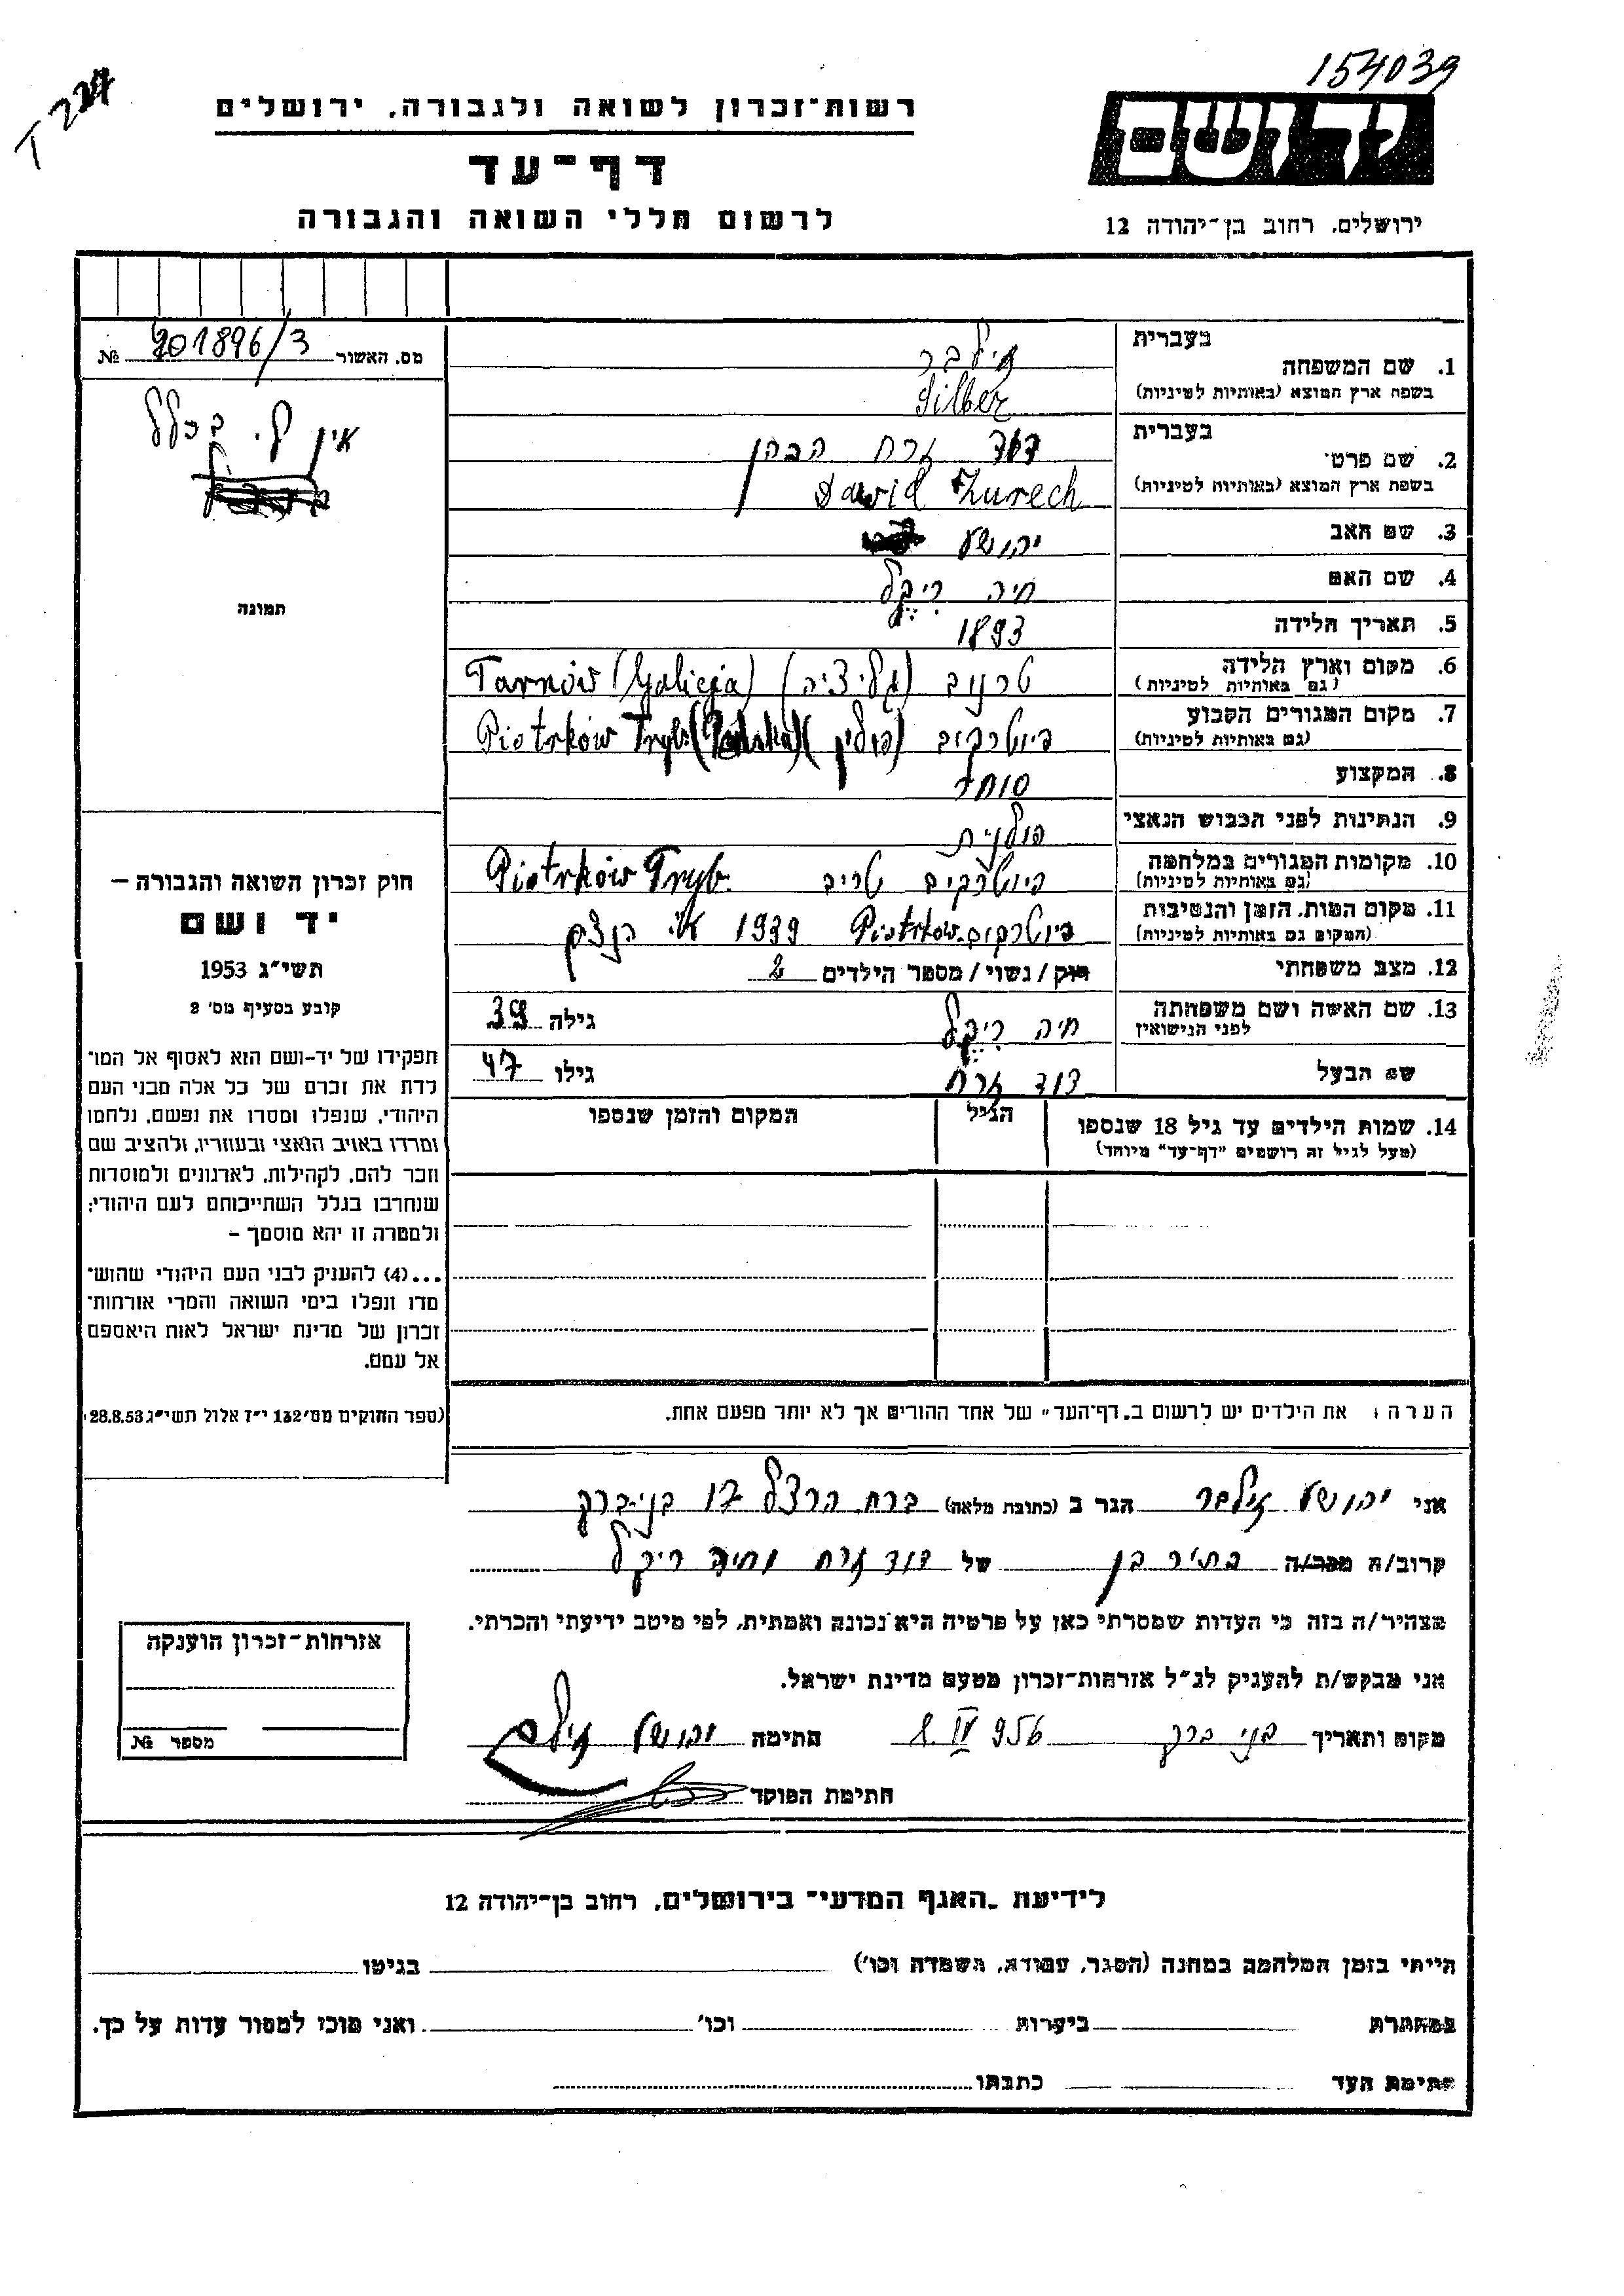 154039
T 227
יד ושם
רשות־זכרון לשואה ולגבורה, ירושלים
דף־עד
לרשום חללי השואה והגבורה
ירושלים, רחוב בן־יהודה 12
מס. האשור 201896/3 №
אין ל. בכלל
תמונה
בעברית
1. שם המשפחה זילבר
בשפת ארץ המוצא (באותיות לטיניות) Silber
בעברית
2. שם פרטי דוד זרח הכהן
בשפת ארץ המוצא (באותיות לטיניות) Dawid Zurech
3. שם האב יהושע
4. שם האם חיה ריבקל
5. תאריך הלידה 1893
6. מקום וארץ הלידה טרנוב (גליציה) Tarnów (Galicja)
(גם באותיות לטיניות)
7. מקום המגורים הקבוע פיוטרקוב (פולין) Piotrków Tryb (Polska)
(גם באותיות לטיניות)
8. המקצוע סוחר
9. הנתינות לפני הכבוש הנאצי פולנית
10. מקומות המגורים במלחמה פיוטרקוב טריב Piotrków Tryb.
(גם באותיות לטיניות)
11. מקום המות, הזמן והנסיבות פיוטרקוב Piotrków 1939
(המקום גם באותיות לטיניות)
12. מצב משפחתי רווק/נשוי/ מספר הילדים 2
13. שם האשה ושם משפחתה חיה ריבקל גילה 39
לפני הנישואין
שם הבעל דוד זרח גילו 47
14. שמות הילדים עד גיל 18 שנספו הגיל המקום והזמן שנספו
(מעל לגיל זה רושמים "דף־עד" מיוחד)
הערה: את הילדים יש לרשום ב„דף־העד" של אחד ההורים אך לא יותר מפעם אחת.
חוק זכרון השואה והגבורה –
יד ושם
תשי"ג 1953
קובע בסעיף מס' 2
תפקידו של יד-ושם הוא לאסוף אל המו־
לדת את זכרם של כל אלה מבני העם
היהודי, שנפלו ומסרו את נפשם, נלחמו
ומרדו באויב הנאצי ובעוזריו, ולהציב שם
וזכר להם, לקהילות, לארגונים ולמוסדות
שנחרבו בגלל השתייכותם לעם היהודי;
ולמטרה זו יהא מוסמך –
...(4) להעניק לבני העם היהודי שהוש־
מדו ונפלו בימי השואה והמרי אזרחות־
זכרון של מדינת ישראל לאות היאספם
אל עמם.
(ספר החוקים מס' 132 י"ז אלול תשי"ג 28.8.53)
אני יהושע זילבר הגר ב (כתובת מלאה) ברח הרצל בני-ברק
קרוב/ה מכר/ה בתור בן של דוד זרח וחיה ריבקל
מצהיר/ה בזה כי העדות שמסרתי כאן על פרטיה היא נכונה ואמתית, לפי מיטב ידיעתי והכרתי.
אני מבקש/ת להעניק לנ"ל אזרחות־זכרון מטעם מדינת ישראל.
מקום ותאריך בני ברק 8 IV 956 חתימה יהושע זילבר
חתימת הפוקד
אזרחות־זכרון הוענקה
מספר №
לידיעת „האגף המדעי" בירושלים, רחוב בן־יהודה 12
הייתי בזמן המלחמה במחנה (הסגר, עבודה, השמדה וכו') בגיטו
במחתרת ביערות וכו' ואני מוכן למסור עדות על כך.
חתימת העד כתבתו